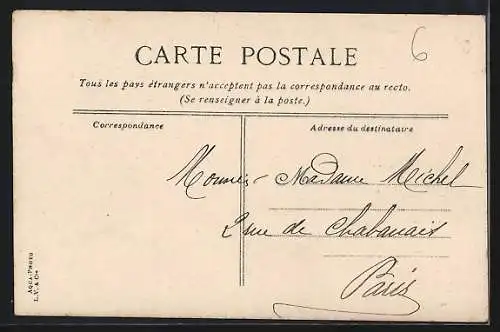 6
CARTE POSTALE
Tous les pays étrangers n'acceptent pas la correspondance au recto.
(Se renseigner à la poste.)
Correspondance
Adresse du destinataire
Madame Michel
2 rue de Chabanais
Paris
AQUA-PHOTO
L. V. & Cie